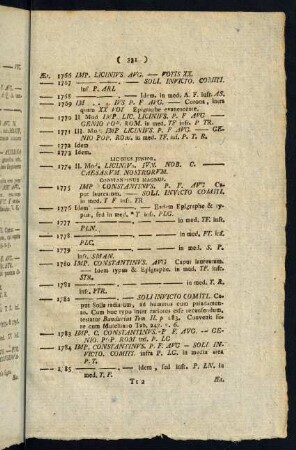 ( 331 )
Æt. 1766 IMP. LICINIVS. AVG. — VOTIS XX.
— 1767 — — — SOLI. INVICTO. COMITI.
inf. P. ARL.
— 1768 — — — Idem. in med. S. F. inft. AS.
— 1769 IM . . . IVS P. F AVG. — Corona, intra
quam XX VOT Epigraphe evanescente.
— 1770 II. Mod. IMP. LIC. LICINIVS. P. F. AVG —
GENIO POP. ROM. in med. TF infr. P. TR.
— 1771 III. Mod. IMP LICINIVS. P. F AVG. — GE-
NIO POP. ROM. in med. TF. inf. P. T. R.
— 1772 Idem
— 1773 Idem.
LICINIUS JUNIOR.
— 1774 II. Mod. LICINIVS. IVN. NOB. C. —
CAESARVM. NOSTRORVM.
CONSTANTINUS MAGNUS.
— 1775 IMP CONSTANTINVS. P. F. AVG Ca-
put laureatum. — SOLI. INVICTO COMITI.
in med. T F inf. TR
— 1776 Idem — — Eadem Epigraphe & ty-
pus, sed in med. * T inft. PLG.
— 1777 — — — — in med. TF. inft.
PLN.
— 1778 — — — — in med. FT. inf.
PLC.
— 1779 — — — — in med. S. P.
inft. SMAN.
— 1780 IMP. CONSTANTINVS. AVG Caput laureatum.
— Idem typus & Epigraphe. in med. TF. inft.
STR.
— 1781 — — — — in med. T. R.
inft. PTR.
— 1782 — — — SOLI INVICTO COMITI. Ca-
put Solis radiatum, ad humeros cum paludamen-
to. Cum hoc typo inter rariores esse recensendum,
testatur Bandurius Tom II. p 183. Convenit fe-
re cum Musellinio Tab. 247. n. 6.
— 1783 IMP. C. CONSTANTINVS. P F. AVG — GE-
NIO. POP. ROM. inf. P LC
— 1784 IMP. CONSTANTINVS. P. F. AVG — SOLI IN-
VICTO. COMITI. infra P. LC. in media area
P.T.
— 1785 — — Idem, sed inft. P. LN. in
med. T. F.
Tt 2
Æt.